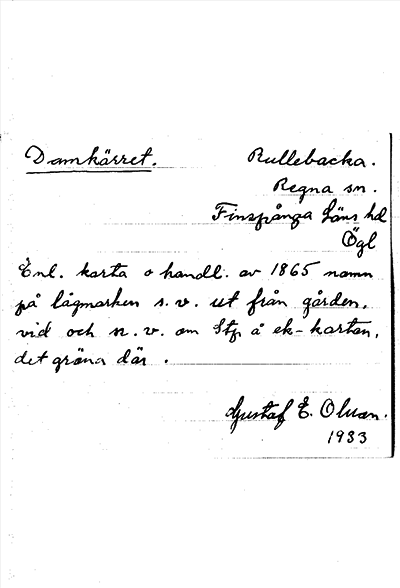 Damkärret. Rullebacka.
Regna sn.
Finspånga läns hd
Ögl
Enl. karta o handl. av 1865 namn
på lågmarken s.v. ut från gården,
vid och n.v. om Stp å ek-kartan,
det gröna där.
Gustaf E. Olsson.
1933